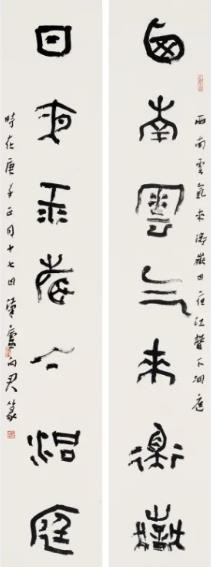 西南雲氣来衡嶽日夜江聲下洞庭
西南雲气來衡嶽
日夜江聲下洞庭
時在庚子正月十七日篆